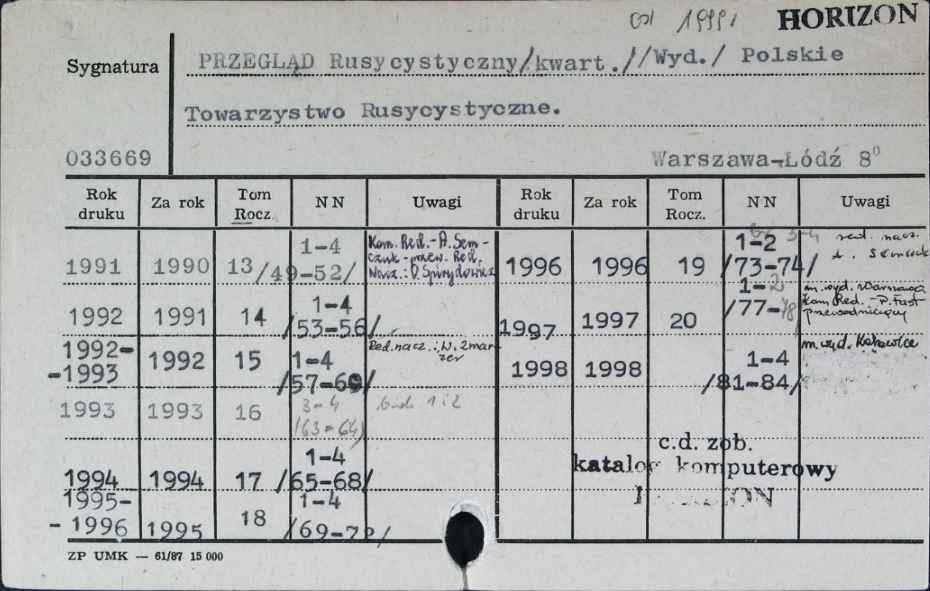 od 1999i HORIZON
Sygnatura PRZEGLĄD Rusycystyczny/kwart.//Wyd./ Polskie
Towarzystwo Rusycystyczne.
033669 Warszawa-Łódź 8⁰
Rok druku Za rok Tom Rocz. NN Uwagi Rok druku Za rok Tom Rocz. NN Uwagi
1991 1990 13 1-4 /49-52/ Kom. Red. - A. Semczuk - przew. Red. Nacz.: D. Spirydowicz 1996 1996 19 1-2 3-4 /73-74/ red. nacz. A. Semczuk
1992 1991 14 1-4 /53-56/ 1997 1997 20 1-2 /77-78/ m. wyd. Warszawa Kom. Red. - P. Fast przewodniczący
1992-
-1993 1992 15 1-4 /57-60/ Red. nacz.: W. Zmarzer 1998 1998 1-4 /81-84/ m. wyd. Katowice
1993 1993 16 3-4 (63-64) Brak 1 i 2
c.d. zob.
1994 1994 17 1-4 /65-68/ katalog komputerowy
1995-
-1996 1995 18 1-4 /69-72/
ZP UMK — 61/87 15 000